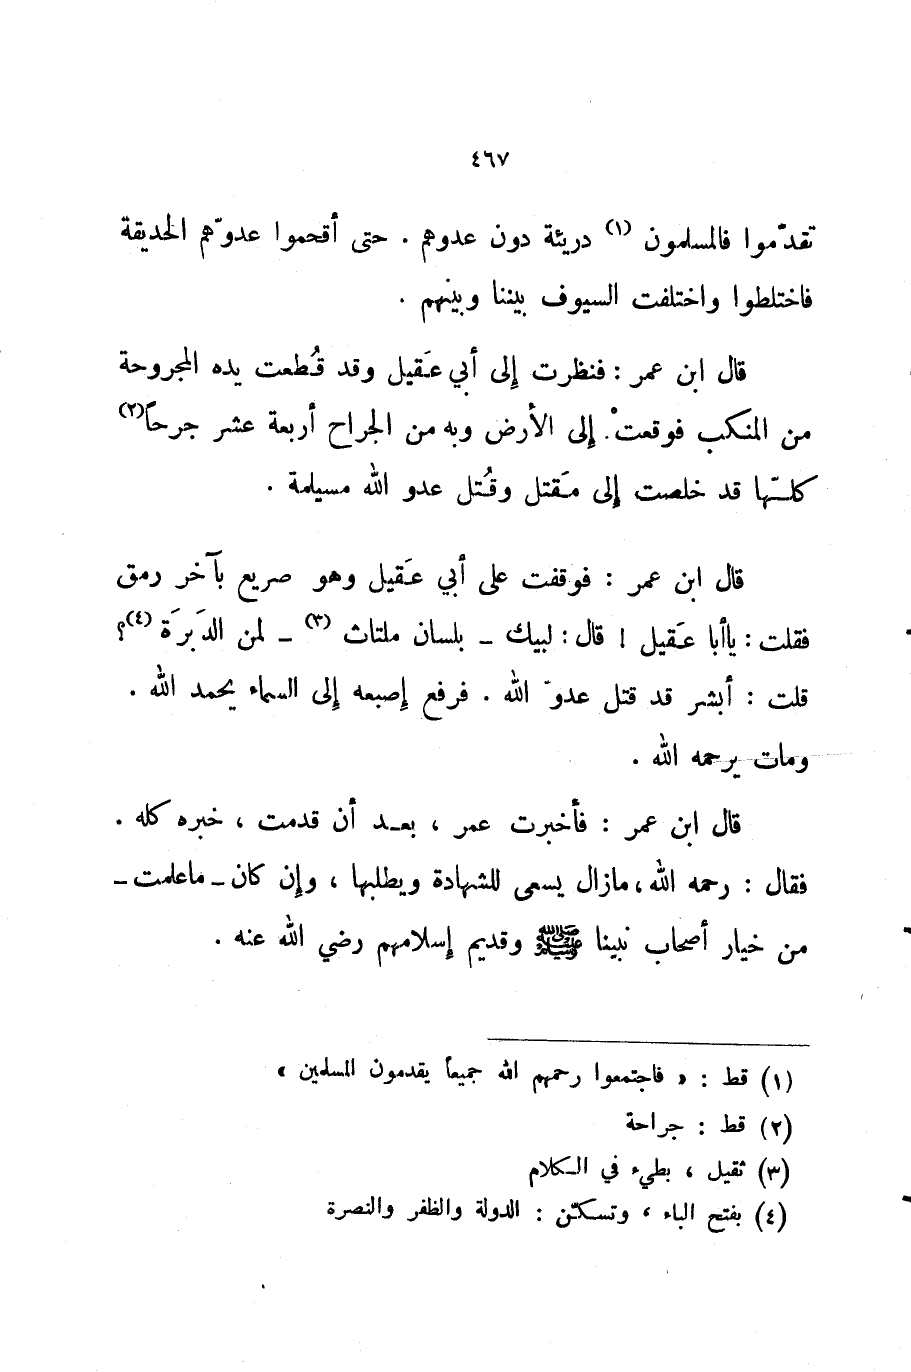 ٤٦٧
تقدّموا فالمسلمون (١) دريئة دون عدوهم . حتى أقحموا عدوّهم الحديقة
فاختلطوا واختلفت السيوف بيننا وبينهم .
قال ابن عمر : فنظرت إلى أبي عَقيل وقد قُطعت يده المجروحة
من المنكب فوقعتْ . إلى الأرض وبه من الجراح أربعة عشر جرحاً (٢)
كلـّها قد خلصت إلى مَقتل وقُتل عدو الله مسيلمة .
قال ابن عمر : فوقفت على أبي عَقيل وهو صريع بآخر رمق
فقلت : ياأبا عَقيل ! قال : لبيك ـ بلسان ملتاث (٣) ـ لمن الدَبرَة (٤) ؟
قلت : أبشر قد قتل عدوّ الله . فرفع إصبعه إلى السماء يحمد الله .
ومات يرحمه الله .
قال ابن عمر : فأخبرت عمر ، بعـد أن قدمت ، خبره كله .
فقال : رحمه الله ، مازال يسعى للشهادة ويطلبها ، وإن كان ـ ماعلمت ـ
من خيار أصحاب نبينا ﷺ وقديم إسلامهم رضي الله عنه .
(١) قط : « فاجتمعوا رحمهم الله جميعاً يقدمون المسلمين »
(٢) قط : جراحة
(٣) ثقيل ، بطيء في الـكلام
(٤) بفتح الباء ، وتسكـّن : الدولة والظفر والنصرة